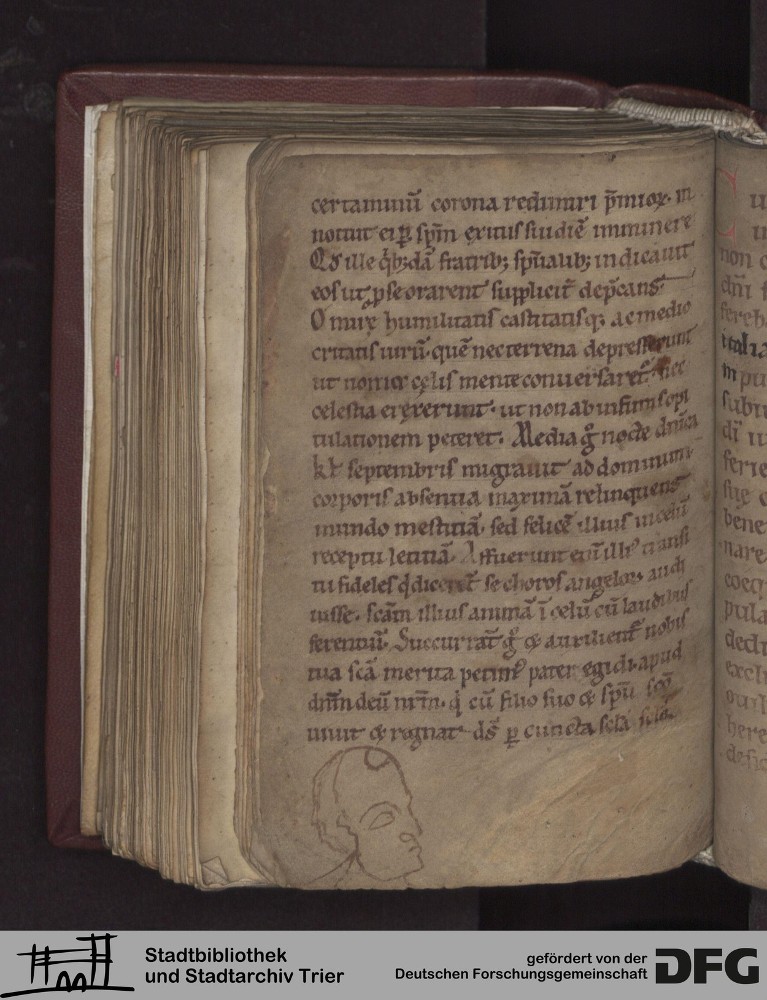 certaminū corona redimiri p̄mior. in
notuit ei ꝑ spm̄ exitus sui diē imminere
Qd̓ ille q̄bꝫdā fratribꝫ spūalibꝫ indicauit
eos ut ꝓ se orarent suppliciť dep̄cans.
O mirę humilitatis castitatisqꝫ ac medio
critatis uirū. quē nec terrena depresserunt
ut non in cęlis mente conuersaret᷒. nec
celestia erexerunt. ut non ab infimis opi
tulationem peteret. Media gͦ nocte dn̄ica
kł septembris migrauit ad dominum.
corporis absentia maximā relinquens
mundo mestitiā. sed felicē illius in celū
receptu letitiā. Affuerunt enī illi᷒ transi
tui fideles qͥ diceret se choros angelor audi
uisse. scām illius animā ī celū cū laudibus
ferentiū. Succurrat gͦ & auxilient᷒ nobis
tua scā merita petim᷒ pater egidi. apud
dn̄m deū nr̄m. qͥ cū filio suo & spū scō
uiuit & regnat ds̄ ꝑ cuncta scła scłoꝝ.
non
dn̄i
fereb
italia
in pu
subu
di
ferie
suę
bene
nare
coeq
pula
dedi
exclu
here
defic
Stadtbibliothek
und Stadtarchiv Trier
gefördert von der
Deutschen Forschungsgemeinschaft
DFG